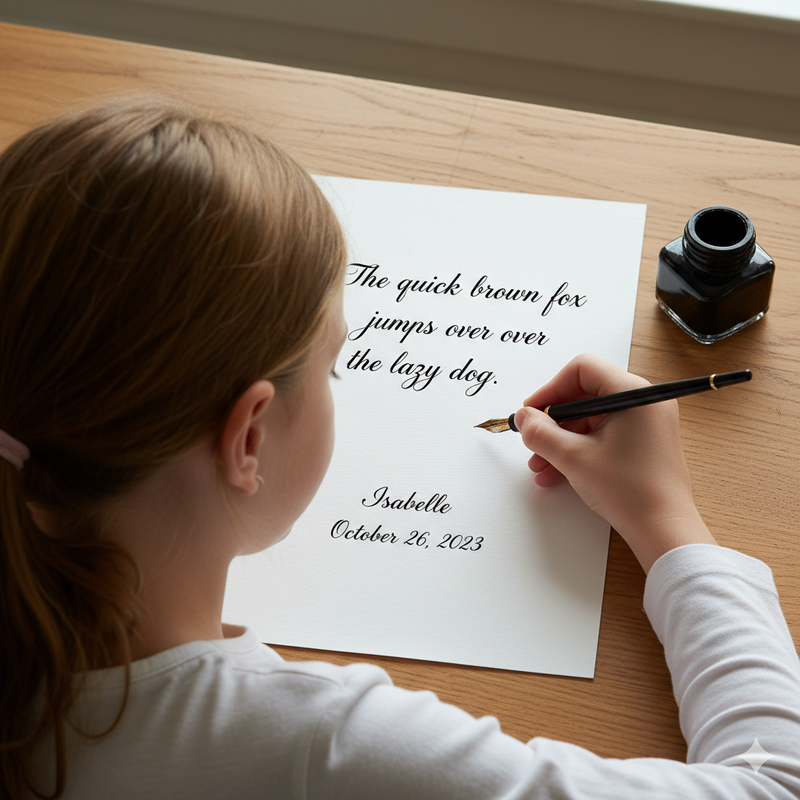 The quick brown fox
jumps over over
the lazy dog.
Isabelle
October 26, 2023